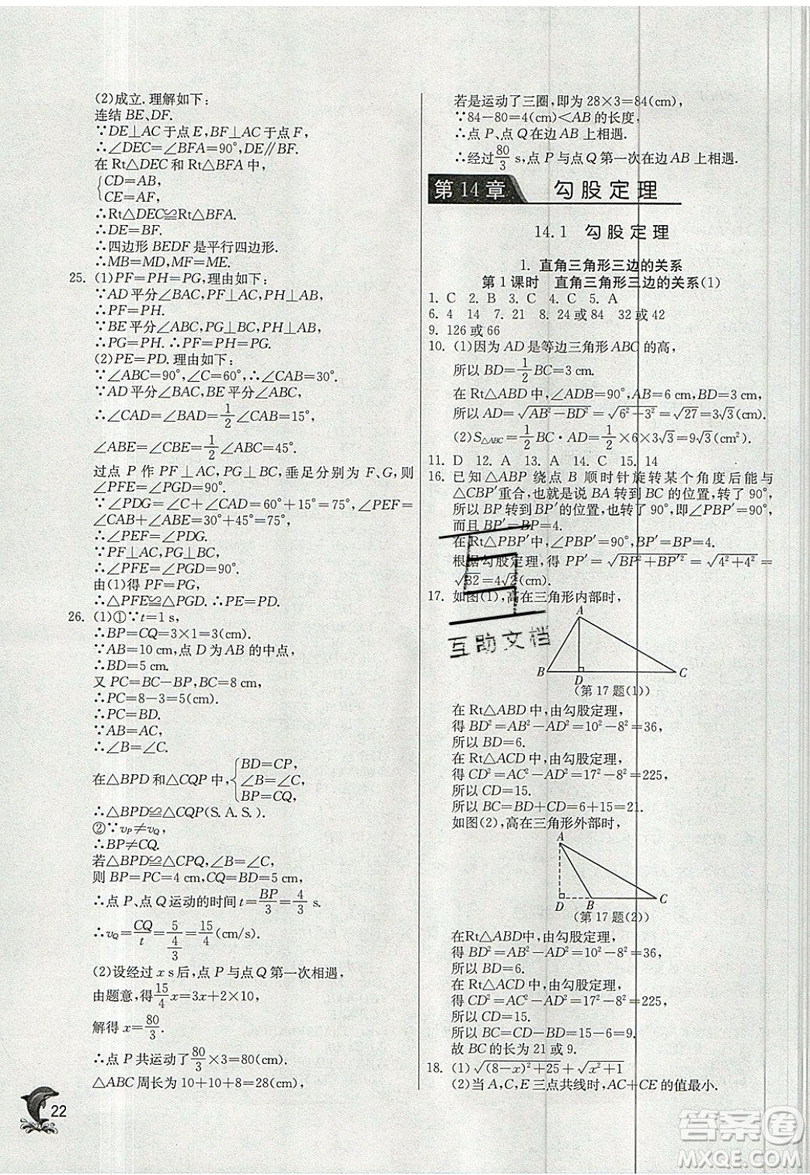 (2)成立.理解如下:
连结 BE、DF.
∵DE⊥AC于点E,BF⊥AC于点F,
∴∠DEC=∠BFA=90°,DE∥BF.
在 Rt△DEC 和 Rt△BFA 中,
{CD=AB,
CE=AF,
∴Rt△DEC≌Rt△BFA.
∴DE=BF.
∴四边形 BEDF 是平行四边形.
∴MB=MD.∴ME=MF.
25. (1)PF=PH=PG,理由如下:
∵AD平分∠BAC,PF⊥AC,PH⊥AB,
∴PF=PH.
∵BE 平分∠ABC,PG⊥BC,PH⊥AB,
∴PG=PH.∴PF=PH=PG.
(2)PE=PD.理由如下:
∵∠ABC=90°,∠C=60°,∴∠CAB=30°.
∵AD平分∠BAC,BE平分∠ABC,
∴∠CAD=∠BAD=1/2∠CAB=15°,
∠ABE=∠CBE=1/2∠ABC=45°.
过点 P 作 PF⊥AC,PG⊥BC,垂足分别为 F、G,则
∠PFE=∠PGD=90°.
∵∠PDG=∠C+∠CAD=60°+15°=75°,∠PEF=
∠CAB+∠ABE=30°+45°=75°,
∴∠PEF=∠PDG.
∵PF⊥AC,PG⊥BC,
∴∠PFE=∠PGD=90°.
由(1)得 PF=PG,
∴△PFE≌△PGD.∴PE=PD.
26. (1)①∵t=1 s,
∴BP=CQ=3×1=3(cm).
∵AB=10 cm,点 D 为 AB 的中点,
∴BD=5 cm.
又 PC=BC-BP,BC=8 cm,
∴PC=8-3=5(cm).
∴PC=BD.
∵AB=AC,
∴∠B=∠C.
在△BPD 和△CQP 中,{BD=CP,
∠B=∠C,
BP=CQ,
∴△BPD≌△CQP(S.A.S.).
②∵vP≠vQ,
∴BP≠CQ.
若△BPD≌△CPQ,∠B=∠C,
则 BP=PC=4 cm,CQ=BD=5 cm.
∴点 P、点 Q 运动的时间 t=BP/3=4/3 s.
∴vQ=CQ/t=5/(4/3)=15/4(cm/s).
(2)设经过 x s后,点 P 与点 Q 第一次相遇,
由题意,得15/4x=3x+2×10,
解得 x=80/3.
∴点 P 共运动了80/3×3=80(cm).
△ABC 周长为10+10+8=28(cm),
22
若是运动了三圈,即为 28×3=84(cm),
∵84-80=4(cm)<AB 的长度,
∴点 P、点 Q 在边 AB 上相遇.
∴经过80/3 s,点 P 与点 Q 第一次在边 AB 上相遇.
第14章 勾股定理
14.1 勾股定理
1. 直角三角形三边的关系
第1课时 直角三角形三边的关系(1)
1. C 2. B 3. C 4. C 5. A
6. 4 14 7. 21 8. 24 或 84 32 或 42
9. 126 或 66
10. (1)因为 AD 是等边三角形 ABC 的高,
所以 BD=1/2BC=3 cm.
在 Rt△ABD 中,∠ADB=90°,AB=6 cm,
所以 AD=√(AB²-BD²)=√(6²-3²)=√27=3√3(cm).
(2)S△ABC=1/2BC·AD=1/2×6×3√3=9√3(cm²).
11. D 12. A 13. A 14. C 15. 14
16. 已知△ABP 绕点 B 顺时针旋转某个角度后能与
△CBP′重合,也就是说 BA 转到 BC 的位置,转了 90°,
所以 BP 转到 BP′的位置,也转了 90°,所以∠PBP′=90°,
而且 BP′=BP=4.
在 Rt△PBP′中,∠PBP′=90°,BP′=BP=4.
根据勾股定理,得 PP′=√(BP²+BP′²)=√(4²+4²)=
√32=4√2(cm).
17. 如图(1),高在三角形内部时,
A
B D C
(第17题(1))
在 Rt△ABD 中,由勾股定理,
得 BD²=AB²-AD²=10²-8²=36,
所以 BD=6.
在 Rt△ACD 中,由勾股定理,
得 CD²=AC²-AD²=17²-8²=225,
所以 CD=15.
所以 BC=BD+CD=6+15=21.
如图(2),高在三角形外部时,
A
D B C
(第17题(2))
在Rt△ABD中,由勾股定理,
得 BD²=AB²-AD²=10²-8²=36,
所以 BD=6.
在Rt△ACD 中,由勾股定理,
得 CD²=AC²-AD²=17²-8²=225,
所以 CD=15.
所以 BC=CD-BD=15-6=9.
故 BC 的长为 21 或 9.
18. (1)√((8-x)²+25)+√(x²+1)
(2)当 A、C、E 三点共线时,AC+CE 的值最小.
互助文档
答案卷
MXQE.COM